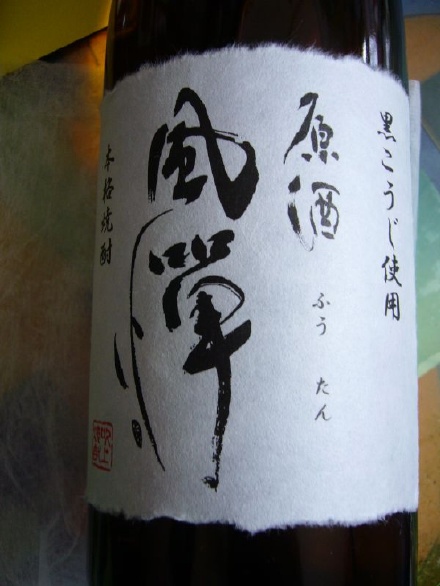 黒こうじ使用
原酒
ふうたん
風憚
本格焼酎